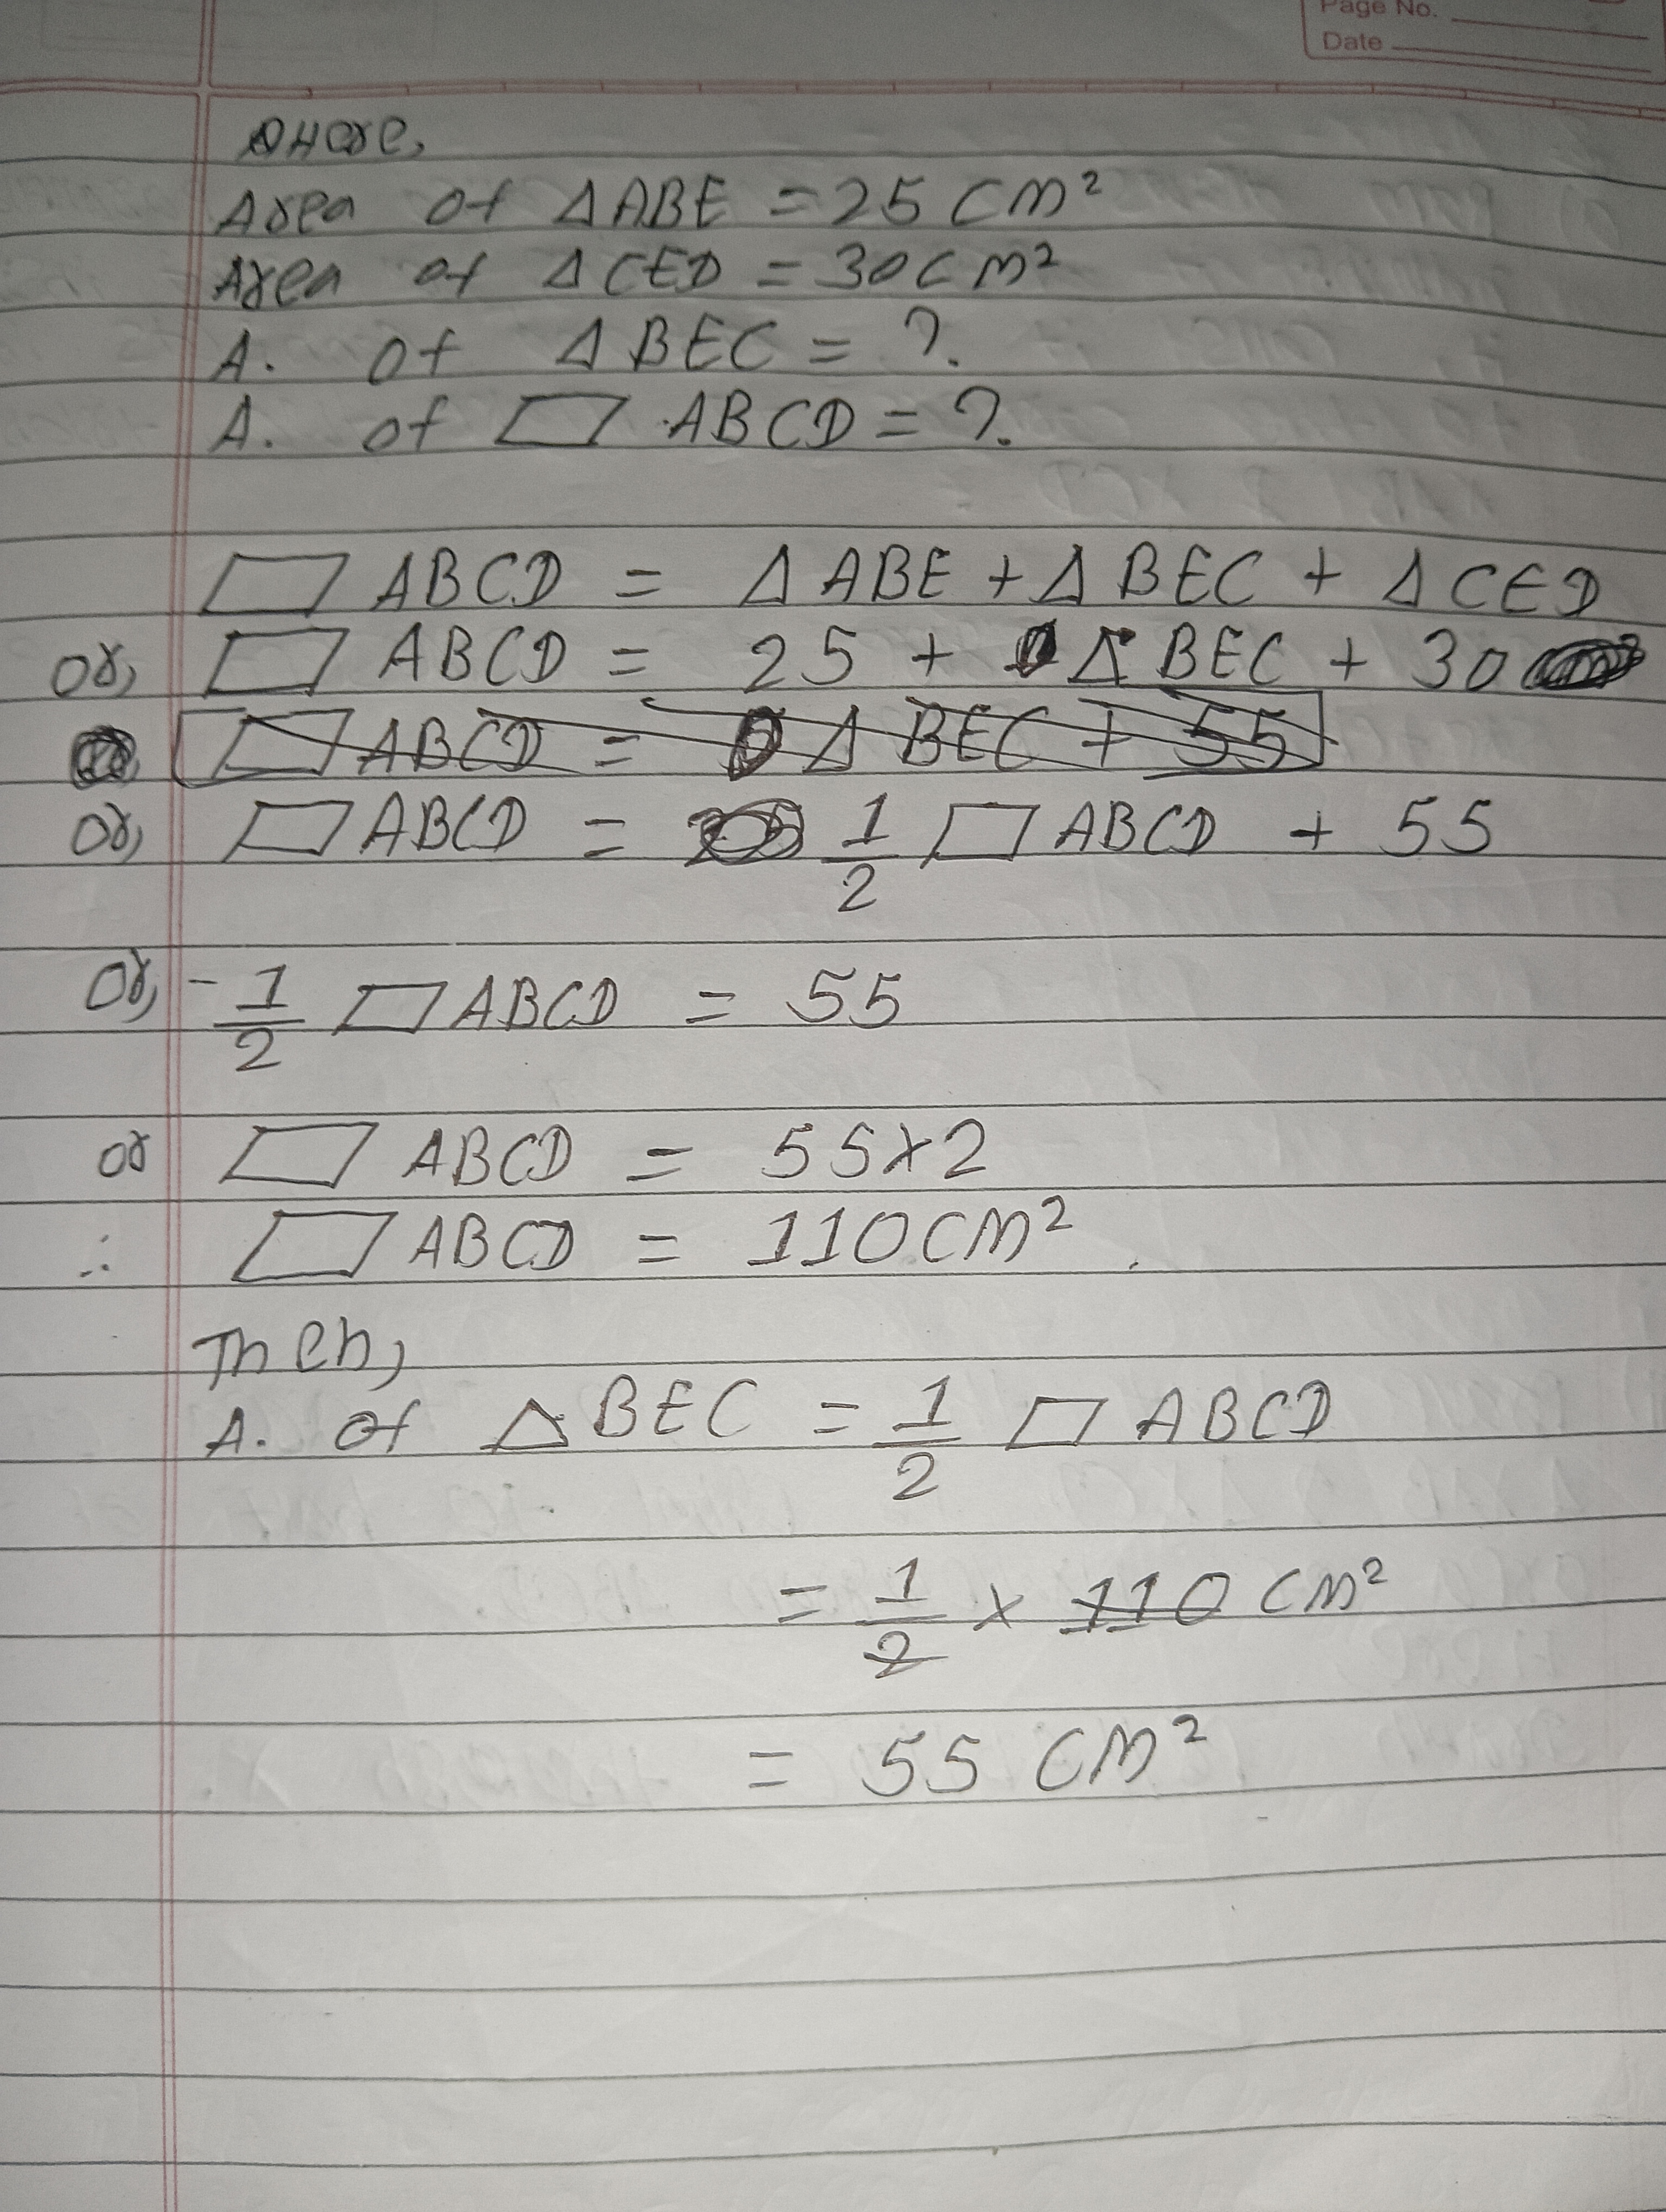 Page No.
Date
Here,
Area of △ABE = 25 cm²
Area of △CED = 30 cm²
A. of △BEC = ?.
A. of ▱ ABCD = ?.
▱ ABCD = △ABE + △BEC + △CED
or, ▱ ABCD = 25 + △BEC + 30
▱ ABCD = △BEC + 55
or, ▱ ABCD = 1/2 ▱ ABCD + 55
or, - 1/2 ▱ ABCD = 55
or ▱ ABCD = 55×2
∴ ▱ ABCD = 110 cm².
Then,
A. of △BEC = 1/2 ▱ ABCD
= 1/2 × 110 cm²
= 55 cm²